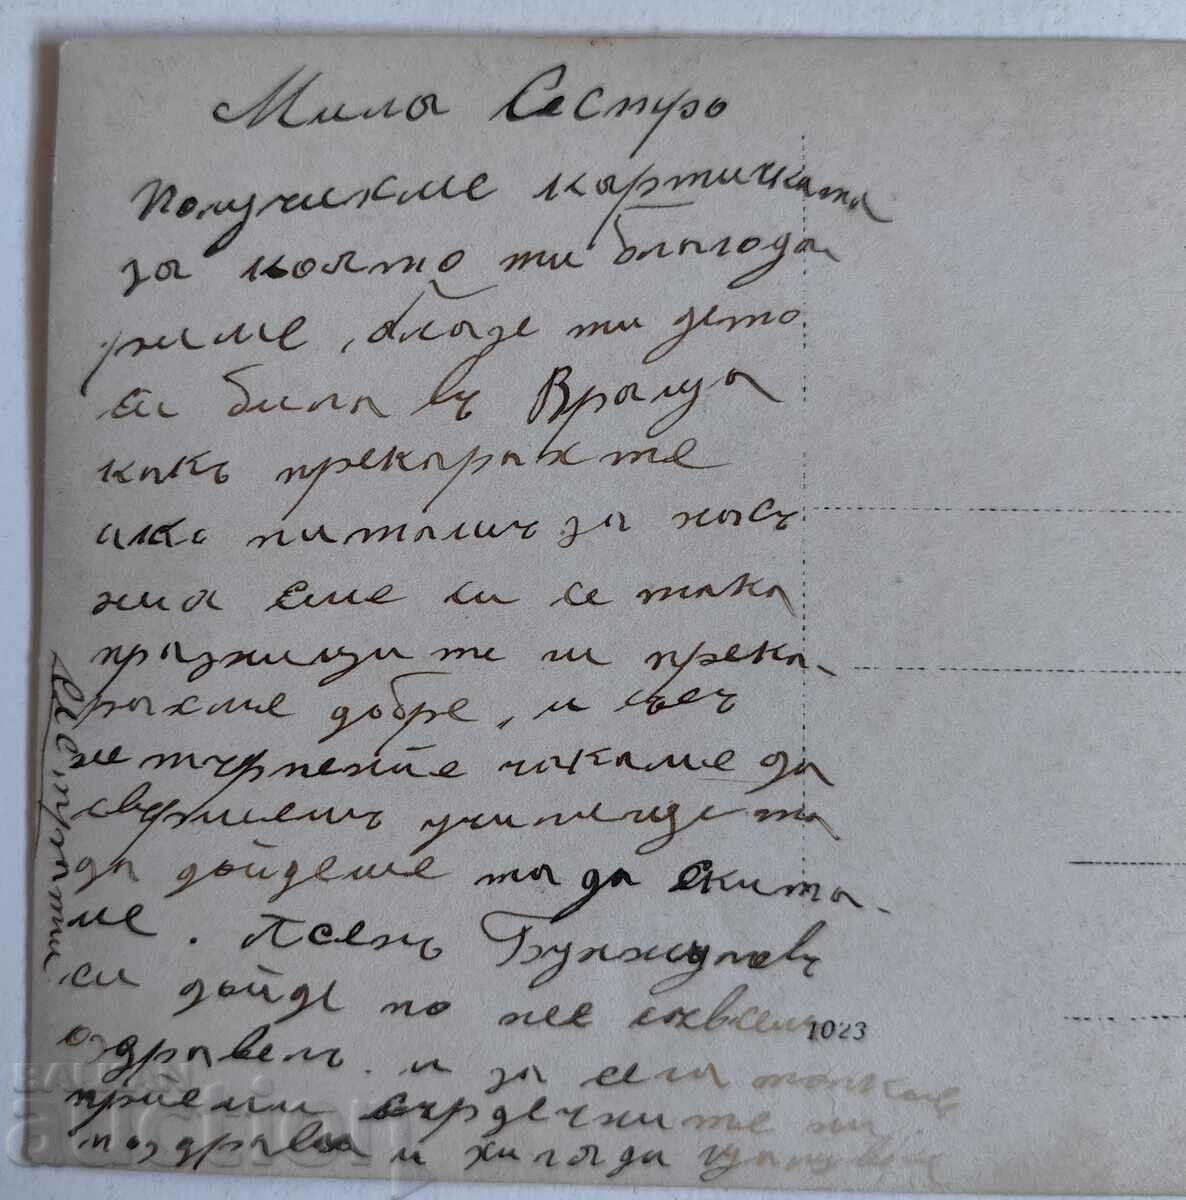 Мила Сестро
Получихме картичката
за която ти благода
риме, блазе ти дето
си била въ Враца
какъ прекарахте
ако питашъ за насъ
ния сме си се така
празниците и прека-
рахме добре, и съсъ
нетърпение чакаме да
свършешъ училището
да дойдеше та да скита-
ме. Асенъ
си дойде но не съвсемъ
оздравелъ. и за сега толкова
приеми сърдечните ни
поздрави и хиляди целувки
Сестра ти
1023
BALKAN
auction